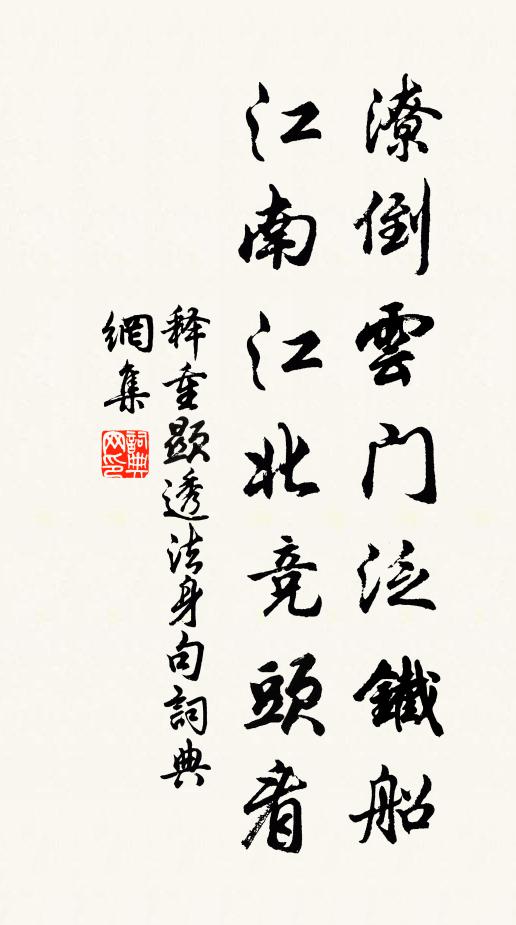 潦倒雲門泛鐵船
江南江北竞頭看
释重顯透法身句詞典
網集
詞典网印